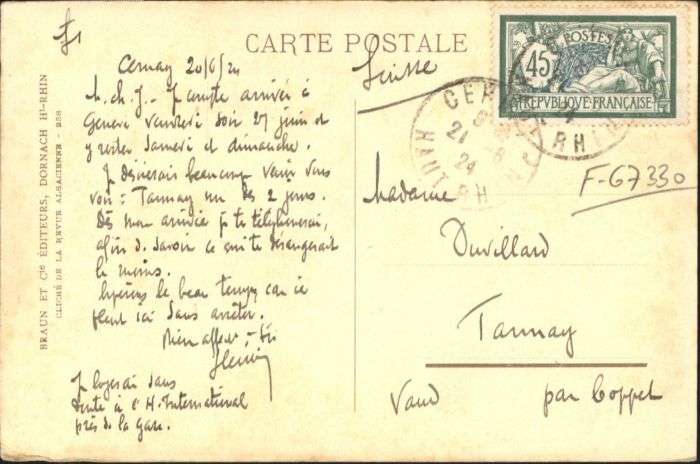 CARTE POSTALE
Cernay 20/6/24
M. ch. J. - J compte arriver à
Genève vendredi soir 27 juin et
y rester samedi et dimanche.
J désirerais beaucoup venir vous
voir à Tannay un des 2 jours.
Dès mon arrivée je te téléphonerai,
afin d. savoir ce qui te dérangerait
le moins.
Espérons le beau temps car ici
pleut ici sans arrêter.
Bien affect.
J logerai sans
doute à l'H. International
près de la gare.
BRAUN ET Cie ÉDITEURS, DORNACH Ht-RHIN
CLICHÉ DE LA REVUE ALSACIENNE - 258
POSTES
45c
REPUBLIQUE FRANÇAISE
CERNAY
21 - 6
24
HAUT RHIN
RHIN
Suisse
F-67330
Madame
Duvillard
Tannay
par Coppet
Vaud